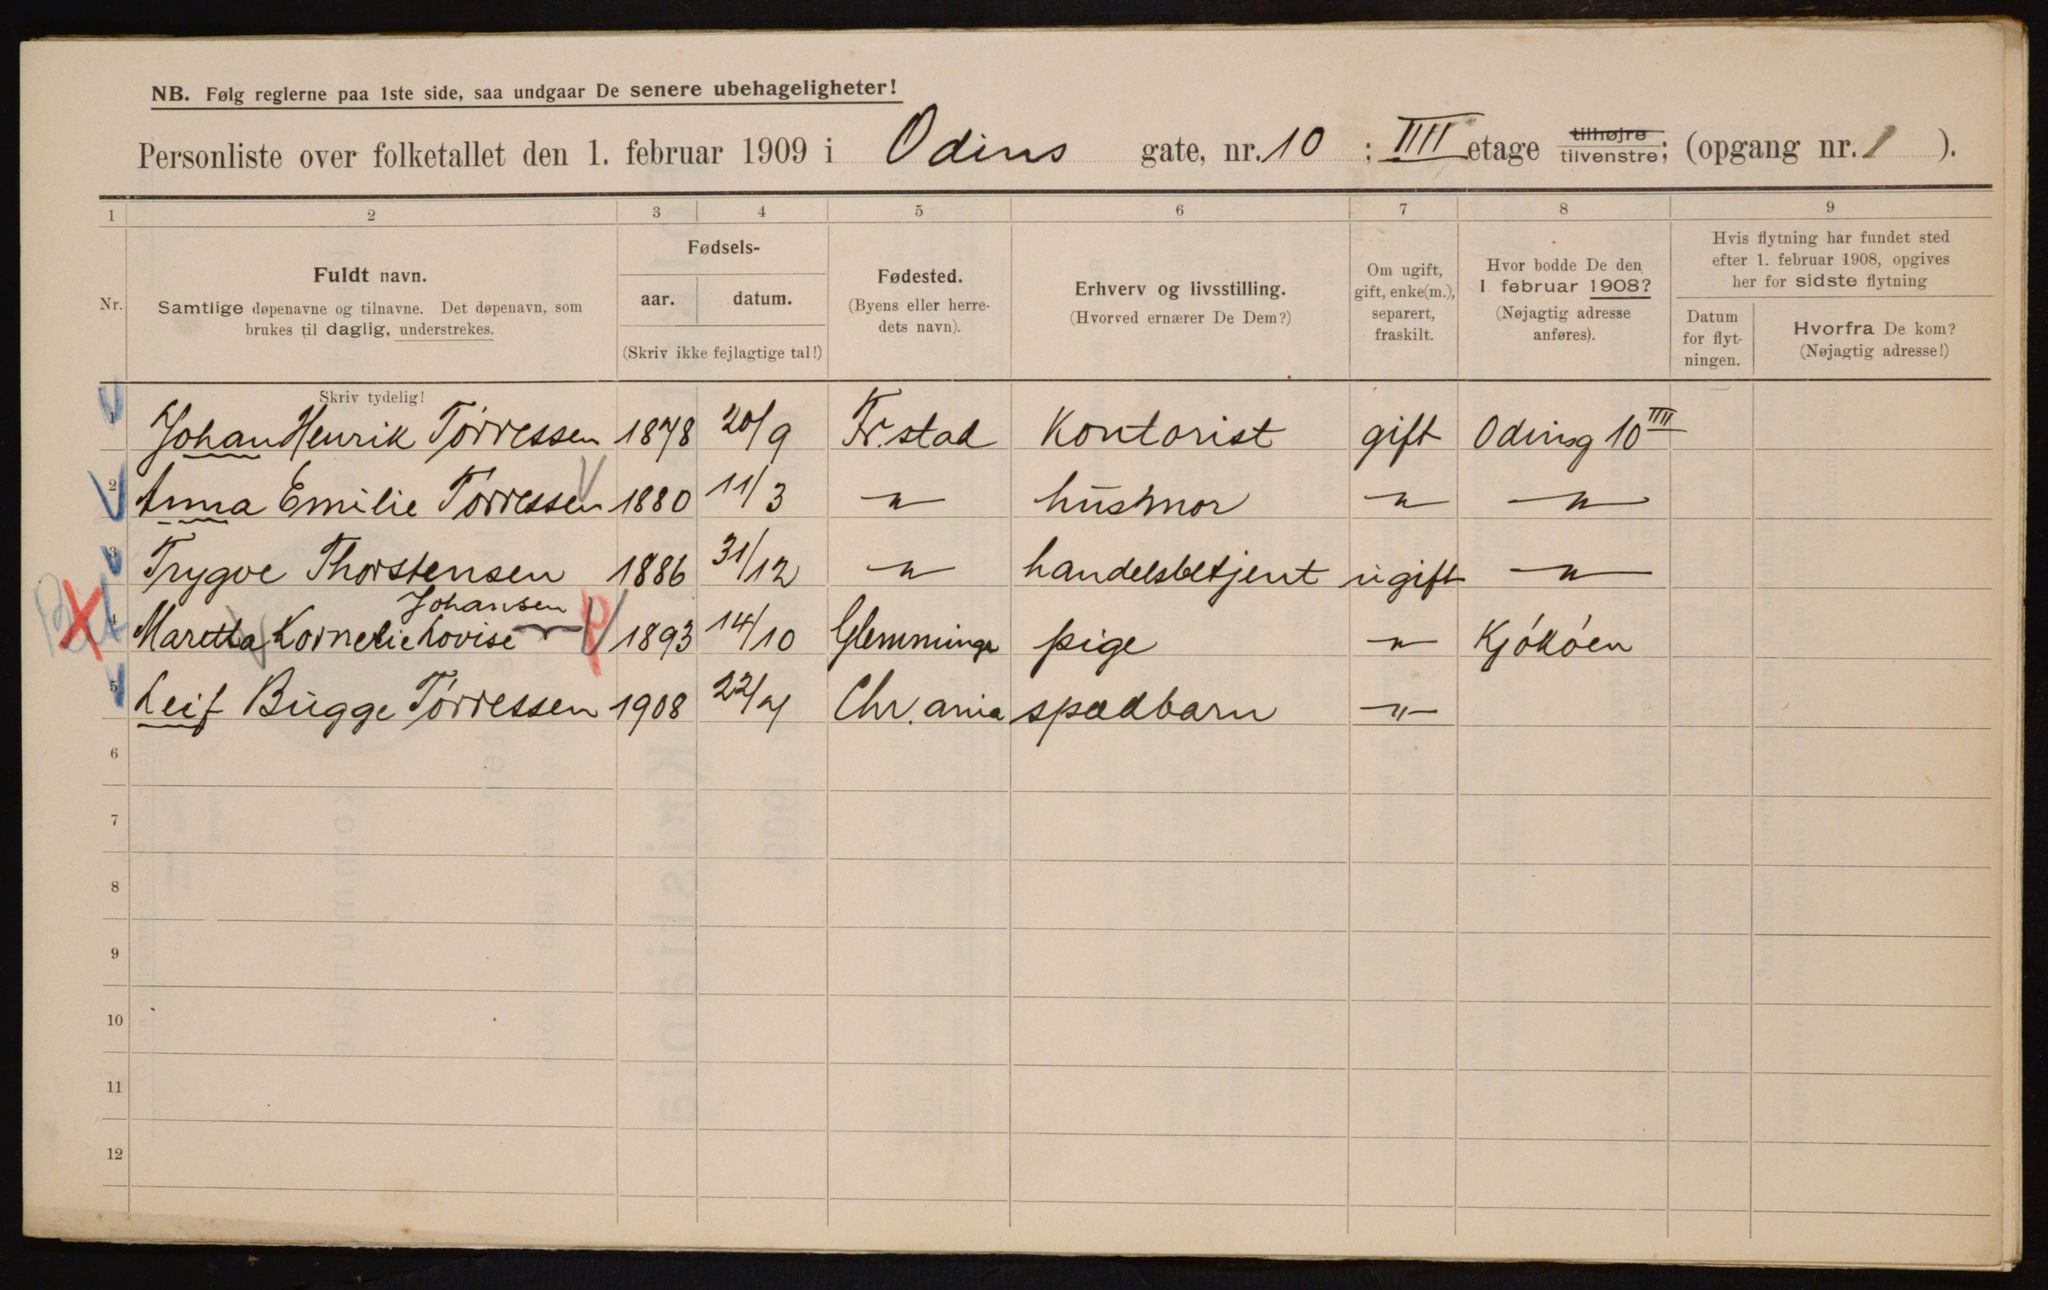 NB. Følg reglerne paa 1ste side, saa undgaar De senere ubehageligheter!
Personliste over folketallet den 1. februar 1909 i Odins gate, nr. 10 ; IIII etage tilhøjre tilvenstre; (opgang nr. 1 ).
1 2 3 4 5 6 7 8 9
Nr.
Fuldt navn.
Samtlige døpenavne og tilnavne. Det døpenavn, som
brukes til daglig, understrekes.
Fødsels-
aar. datum.
(Skriv ikke fejlagtige tal!)
Fødested.
(Byens eller herre-
dets navn).
Erhverv og livsstilling.
(Hvorved ernærer De Dem?)
Om ugift,
gift, enke(m.),
separert,
fraskilt.
Hvor bodde De den
1 februar 1908?
(Nøjagtig adresse
anføres).
Hvis flytning har fundet sted
efter 1. februar 1908, opgives
her for sidste flytning
Datum
for flyt-
ningen.
Hvorfra De kom?
(Nøjagtig adresse!)
Skriv tydelig!
1 Johan Henrik Tørressen 1878 20/9 Fr.stad Kontorist gift Odinsg 10 IIII
2 Anna Emilie Tørressen 1880 11/3 " husmor " "
3 Trygve Thorstensen 1886 31/12 " handelsbetjent ugift "
Johansen
4 Maretta Kornelie Lovise 1893 14/10 Glemminge pige " Kjøkøen
5 Leif Bugge Tørressen 1908 22/4 Chr.ania spædbarn "
6
7
8
9
10
11
12